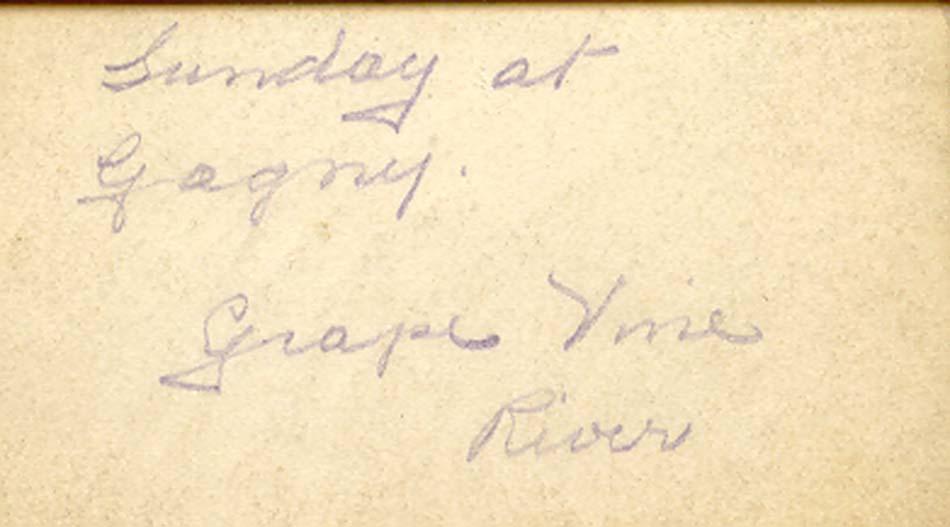 Sunday at
Gagny.
Grape Vine
River